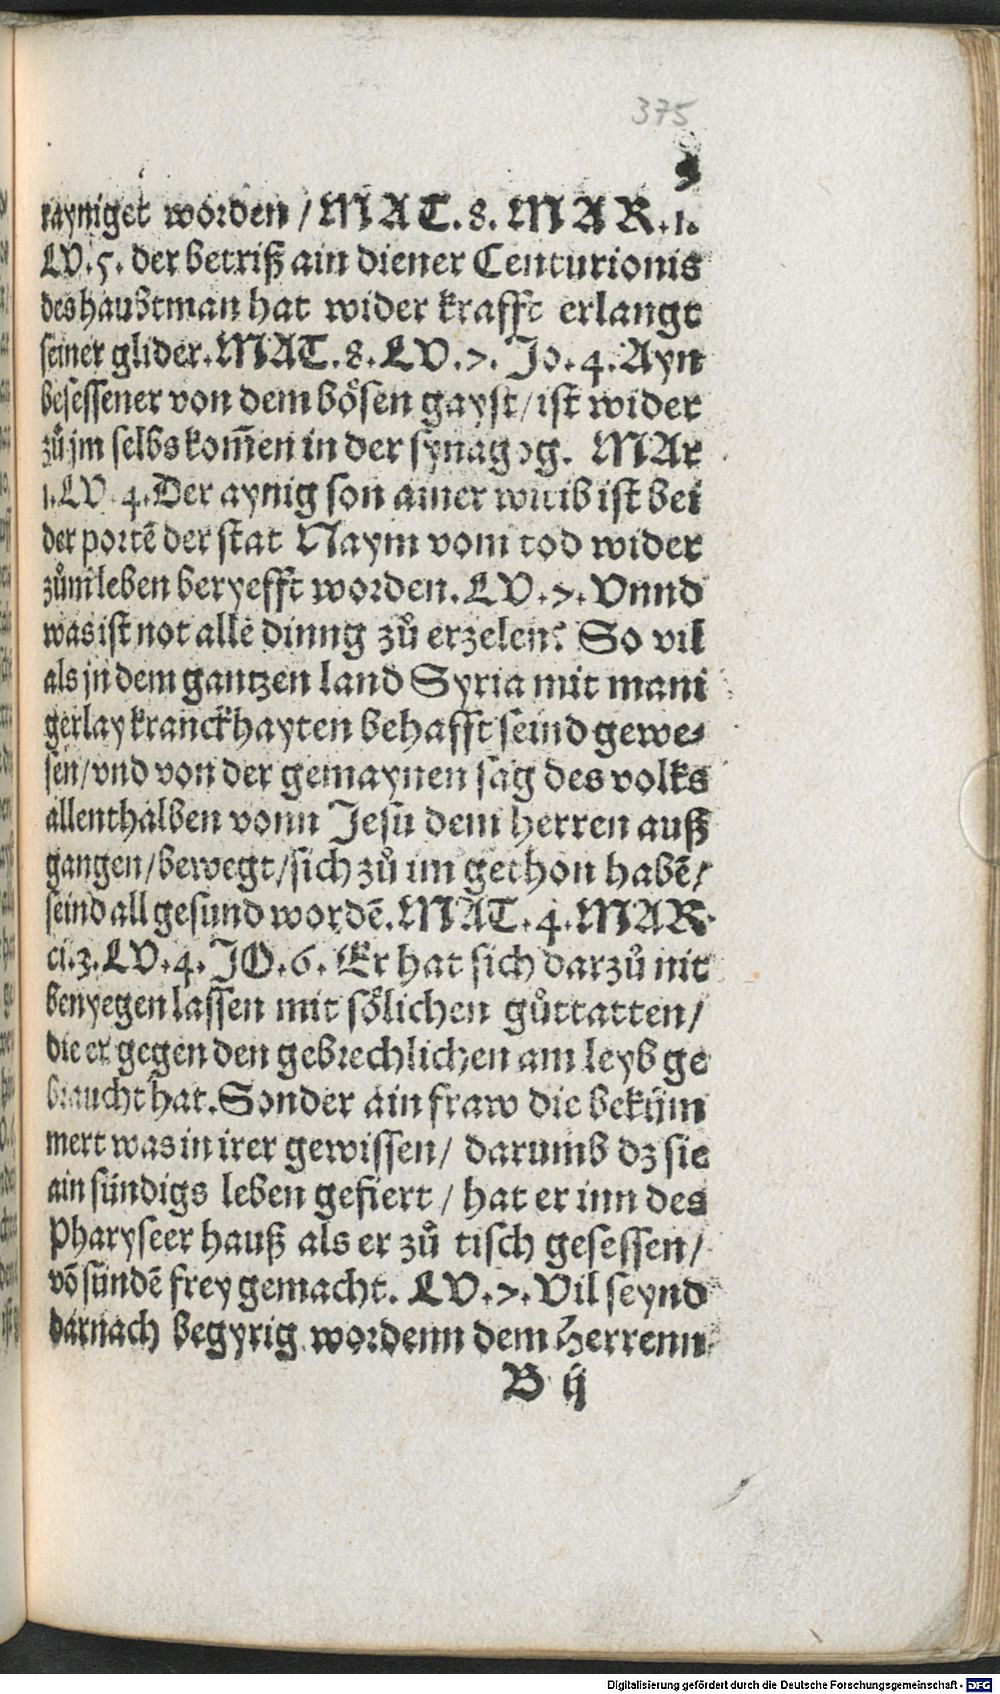 375
rayniget worden / MAT. 8. MAR. 1.
LV. 5. der betriß ain diener Centurionis
des haubtman hat wider krafft erlangt
seiner glider. MAT. 8. LV. 7. Jo. 4. Ayn
besessener von dem bösen gayst / ist wider
zů jm selbs kom̄en in der synagog. MAr
1. LV. 4. Der aynig son ainer wittib ist bei
der portē der stat Naym vom tod wider
zům leben beryefft worden. LV. 7. Vnnd
was ist not alle dinng zů erzelen? So vil
als jn dem gantzen land Syria mit mani
gerlay kranckhayten behafft seind gewe⸗
sen / vnd von der gemaynen sag des volks
allenthalben vonn Jesu dem herren auß
gangen / bewegt / sich zů im gethon habē /
seind all gesund wordē. MAT. 4. MAR
ci. 3. LV. 4. JO. 6. Er hat sich darzů nit
benyegen lassen mit sölichen gůttatten /
die er gegen den gebrechlichen am leyb ge
braucht hat. Sonder ain fraw die beküm
mert was in irer gewissen / darumb dz sie
ain sündigs leben gefiert / hat er inn des
Pharyseer hauß als er zů tisch gesessen /
vō sündē frey gemacht. LV. 7. Vil seynd
darnach begyrig wordenn dem Herrenn
B ij
Digitalisierung gefördert durch die Deutsche Forschungsgemeinschaft - DFG